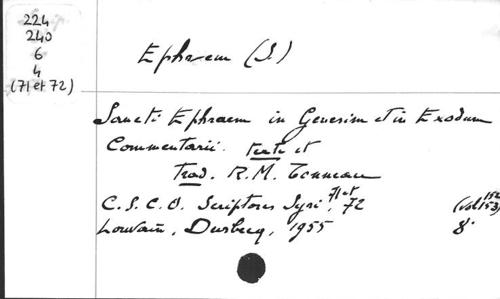 224
240
6
4
(71 et 72)
Ephrem (S.)
Sancti Ephraem in Genesim et in Exodum
Commentarii. texte et
trad. R. M. Tonneau
C. S. C. O. Scriptores Syri, 71 et 72 (Vol 152 153)
Louvain, Durbecq, 1955 8°